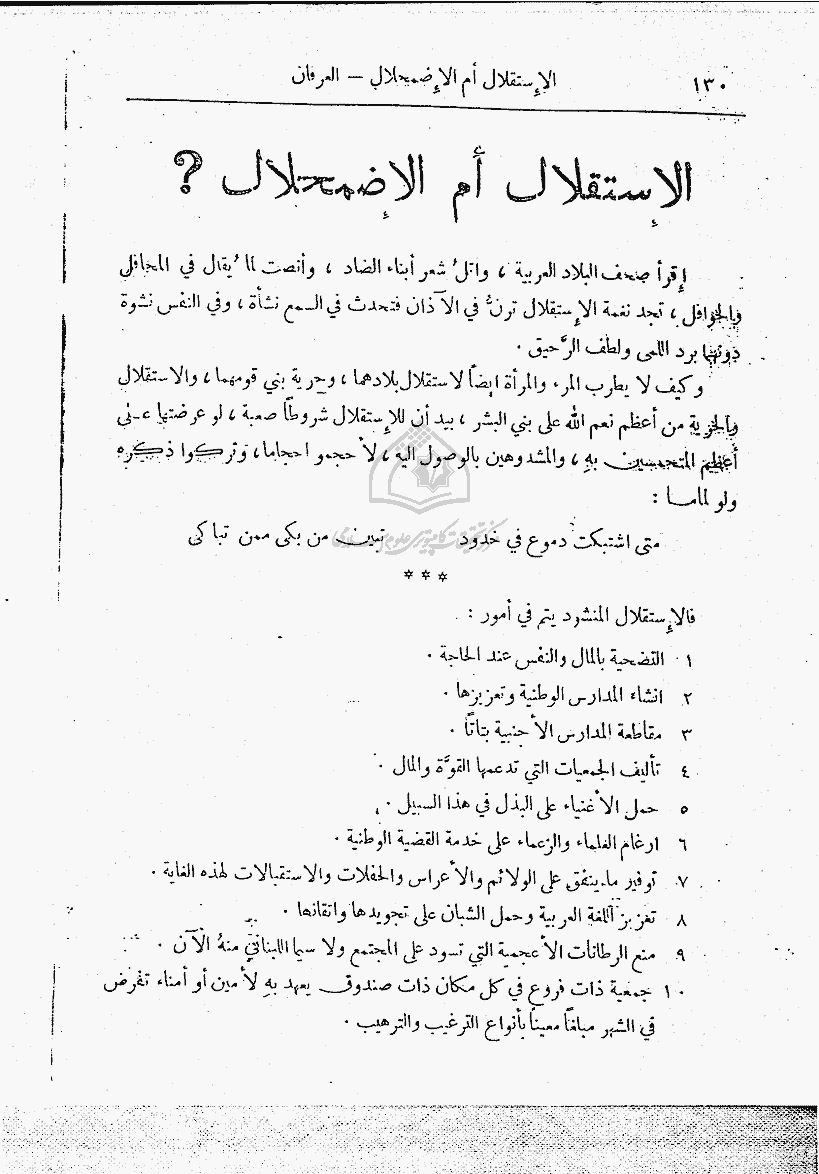 ١٣٠ الإستقلال أم الإضمحلال – العرفان
الإستقلال أم الإضمحلال ؟
إقرأ صحف البلاد العربية ، واتلُ شعر أبناء الضاد ، وأنصت لما يُقال في المحافل
والجوافل ، تجد نغمة الإستقلال ترنُّ في الآذان فتحدث في السمع نشأة ، وفي النفس نشوة
دونها برد اللمى ولطف الرَّحيق .
وكيف لا يطرب المرء والمرأة ايضاً لاستقلال بلادهما ، وحرية بني قومهما ، والاستقلال
والحرية من أعظم نعم الله على بني البشر ، بيد أن للإستقلال شروطاً صعبة ، لو عرضتها على
أعظم المتحمسين بهِ ، والمشدوهين بالوصول اليه ، لأحجمو احجاما ، وتركوا ذكره
ولو لماما :
متى اشتبكت دموع في خدود تبين من بكى ممن تباكى
* * *
فالإستقلال المنشود يتم في أمور :
١ التضحية بالمال والنفس عند الحاجة .
٢ انشاء المدارس الوطنية وتعزيزها .
٣ مقاطعة المدارس الأجنبية بتاتاً .
٤ تأليف الجمعيات التي تدعمها القوَّة والمال .
٥ حمل الأغنياء على البذل في هذا السبيل .
٦ ارغام العلماء والزعماء على خدمة القضية الوطنية .
٧ توفير ما ينفق على الولائم والأعراس والحفلات والاستقبالات لهذه الغاية .
٨ تعزيز اللغة العربية وحمل الشبان على تجويدها واتقانها .
٩ منع الرطانات الأعجمية التي تسود على المجتمع ولا سيما اللبناني منهُ الآن .
١٠ جمعية ذات فروع في كل مكان ذات صندوق يعهد بهِ لأمين أو أمناء تفرض
في الشهر مبلغاً معيناً بأنواع الترغيب والترهيب .